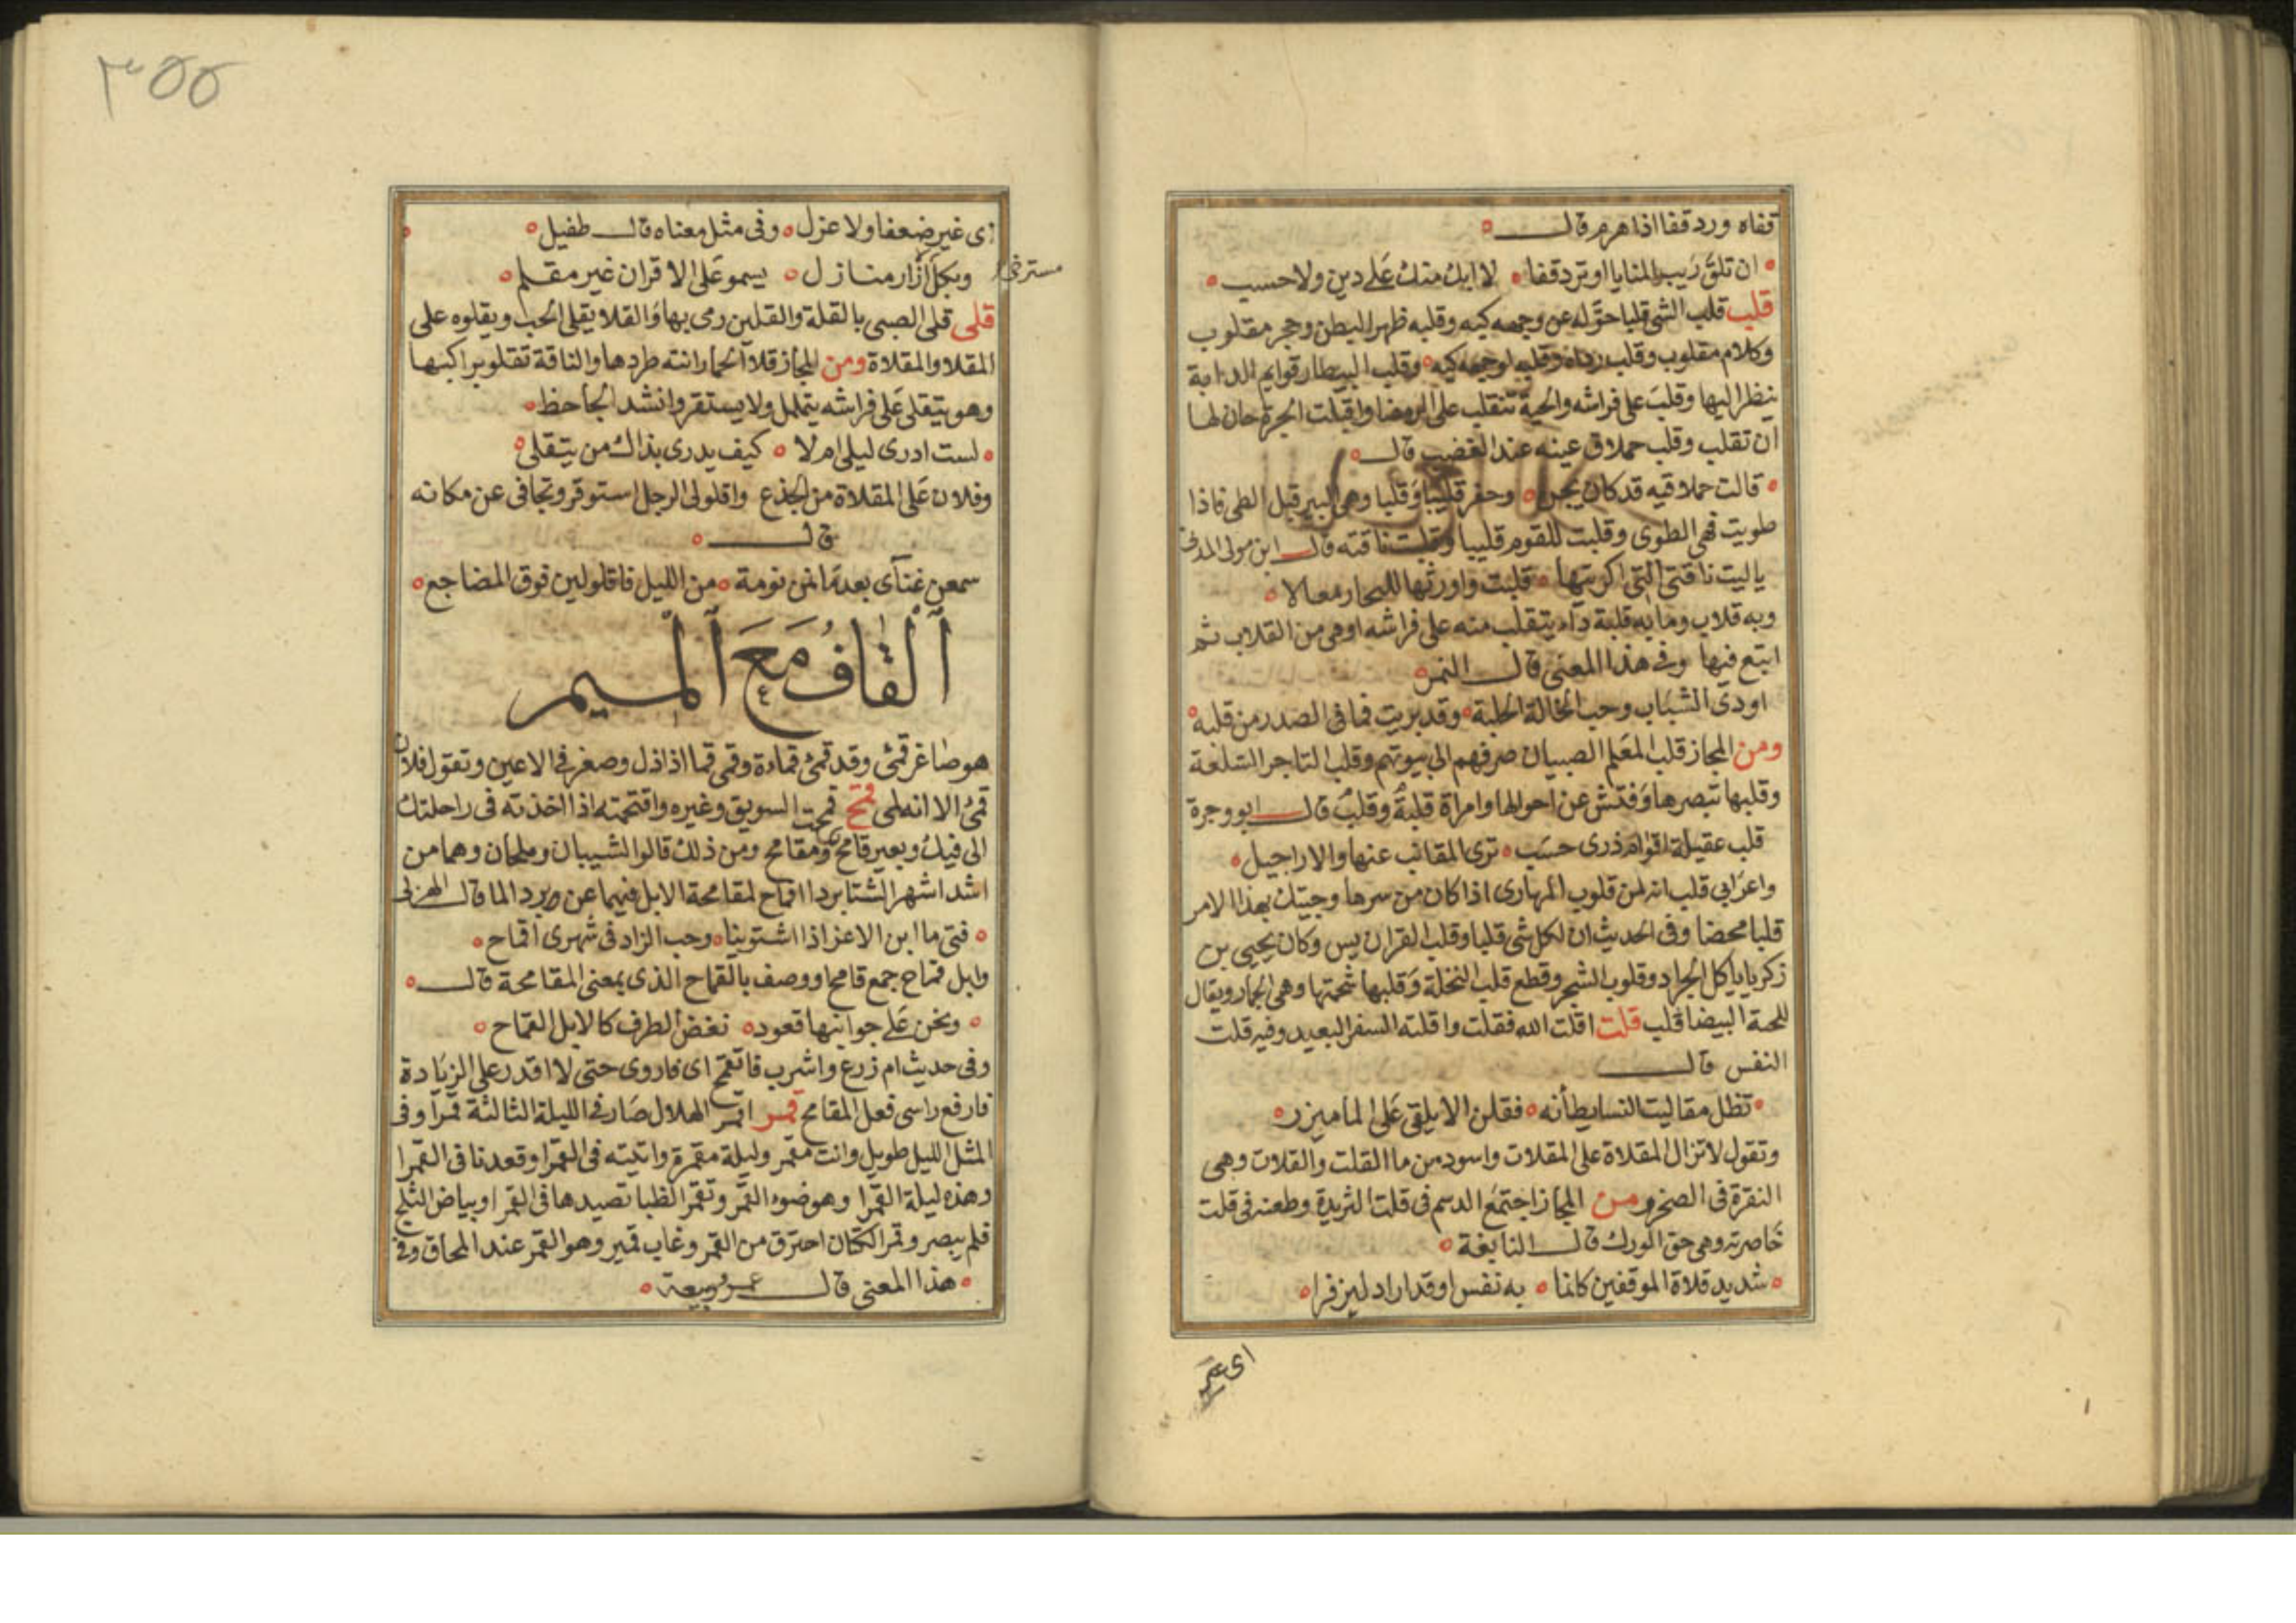 قفاه ورد قفا اذا هرم قال
ان تلق ريب المنايا او ترد قفا لا ابك منك على دين ولا حسب
قلب قلب الشى قلبا حوله عن وجهه كبه وقلبه ظهرا لبطن وحجر مقلوب
وكلام مقلوب وقلب رداه وقلبه لوجهه كبه وقلب البيطار قوايم الدابة
ينظر اليها وقلب على فراشه والحية تتقلب على الرمضا واقبلت الخبزة حان لها
ان تقلب وقلب حملاق عينه عند الغضب قال
قالت حملاقيه قد كان يجن وحفر قليبا وقلبا وهى البير قبل الطى فاذا
طويت فهى الطوى وقلبت للقوم قليبا وقلبت ناقته قال ابن مولى المدنى
ياليت ناقتى التى اكريتها قلبت واورثها للبحار معالا
وبه قلاب وما به قلبة داء يتقلب منه على فراشه او هى من القلاب ثم
اتبع فيها وفى هذا المعنى قال النمر
اودى الشباب وحب الخالة الخلبة وقد بريت فما فى الصدر من قلبه
ومن المجاز قلب المعلم الصبيان صرفهم الى بيوتهم وقلب التاجر السلعة
وقلبها تبصرها وفتش عن احوالها وامراة قلبة وقلب قال ابو وجزة
قلب عقيلة اقوام ذرى حسب ترى المقانب عنها والاراجيل
واعرابى قلب انه لمن قلوب المهارى اذا كان من سرها وجيتك بهذا الامر
قلبا محضا وفى الحديث ان لكل شى قلبا وقلب القران يس وكان يحيى بن
زكريا ياكل الجراد وقلوب الشجر وقطع قلب النخلة وقلبها شحمتها وهى الجمار ويقال
للحية البيضا قلب قلت اقلت الله فقلت واقلته السفر البعيد وفيه قلت
النفس قال
تظل مقاليت النسا يطأنه فقلن الا يلقى على لما ميزر
وتقول لا تزال المقلاة على المقلات واسود من ما القلت والقلات وهى
النقرة فى الصخر ومن المجاز اجتمع الدسم فى قلت الثريدة وطعنه فى قلت
خاصرته وهى حق الورك قال النابغة
شديد قلاة الموقفين كانما به نفس او قد اراد ليزفرا
اى غير
٣٥٥
اى غير ضعفا ولا عزل وفى مثل معناه قال طفيل
وبكل ازار منازل يسمو على الاقران غير مقلم
مسترخى
قلى قلى الصبى بالقلة والقلين رمى بها والقلا يقلى الحب ويقلوه على
المقلا والمقلاة ومن المجاز قلا الحمار اتنه طردها والناقة تقلو براكبها
وهو يتقلى على فراشه يتملل ولا يستقر وانشد الجاحظ
لست ادرى ليلى ام لا كيف يدرى بذاك من يتقلى
وفلان على المقلاة من الجذع واقلولى الرجل استوقز وتجافى عن مكانه
قال
سمعن غنآى بعد ما نمن نومة من الليل فاقلولين فوق المضاجع
اَلْقافُ مَعَ اَلْمـيم
هو صاغر قمئ وقد قمئ قماءة وقمى قما اذا ذل وصغر فى الاعين وتقول فلان
قمئ الا انه لمى قمح قمحت السويق وغيره واقتمحته اذا اخذته فى راحلتك
الى فيك وبعير قامح ومقامح ومن ذلك قالوا لشيبان وملحان وهما من
اشد اشهر الشتا بردا اقماح لمقامحة الابل فيهما عن ورد الما قال الهزلى
فتى ما ابن الاعز اذا اشتوينا وحب الزاد فى شهرى اقماح
وابل قماح جمع قامح او وصف بالقماح الذى بمعنى المقامحة قال
ونحن على جوانبها قعود نغض الطرف كالابل القماح
وفى حديث ام زرع واشرب فاتقمح اى فاروى حتى لا اقدر على الزيادة
فارفع راسى فعل المقامح قمر اقمر الهلال صار فى الليلة الثالثة قمرا وفى
المثل الليل طويل وانت مقمر وليلة مقمرة واتيته فى القمرا وقعدنا فى القمرا
وهذه ليلة القمرا وهو ضوء القمر وتقمر الظبا تصيدها فى القمرا وبياض الثلج
فلم يبصر وقمر الكتان احترق من القمر وغاب قمير وهو القمر عند المحاق وفى
هذا المعنى قال عمر ربيعة